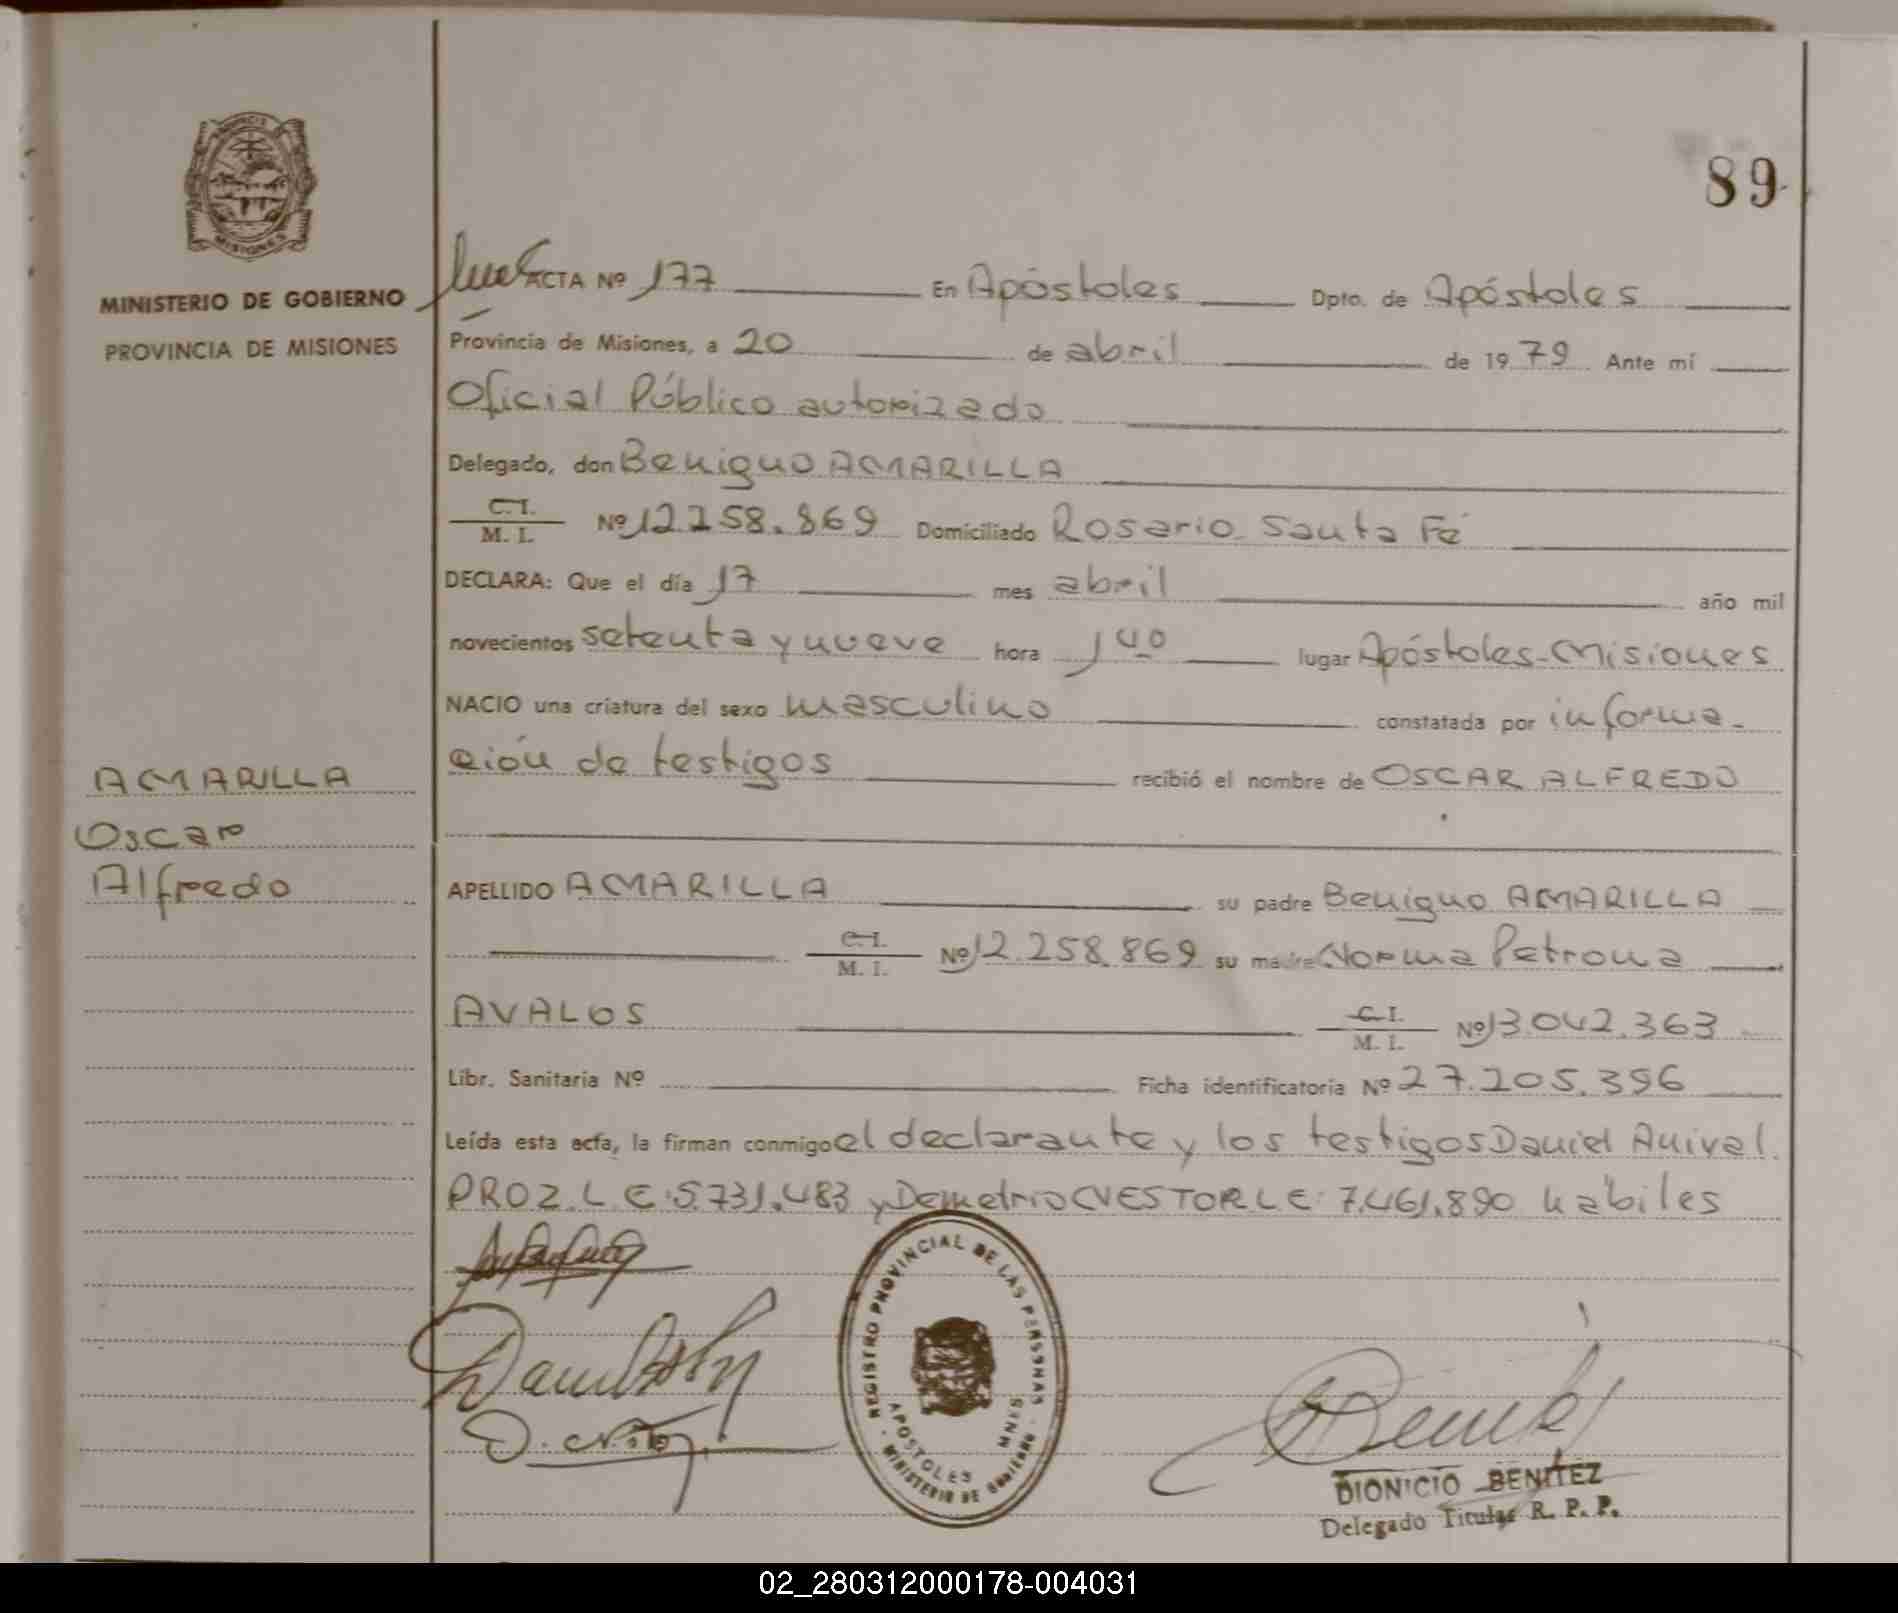 89
PROVINCIA
MISIONES
MINISTERIO DE GOBIERNO
PROVINCIA DE MISIONES
ACTA Nº 177 En Apóstoles Dpto. de Apóstoles
Provincia de Misiones, a 20 de abril de 1979 Ante mí
Oficial Público autorizado
Delegado, don Benigno AMARILLA
C. I.
M. I. Nº 12.258.869 Domiciliado Rosario Santa Fé
DECLARA: Que el día 17 mes abril año mil
novecientos setenta y nueve hora 1 40 lugar Apóstoles-Misiones
NACIO una criatura del sexo masculino constatada por informa-
ción de testigos recibió el nombre de OSCAR ALFREDO
AMARILLA
Oscar
Alfredo
APELLIDO AMARILLA su padre Benigno AMARILLA
C. I.
M. I. Nº 12.258.869 su madre Norma Petrona
AVALOS C. I.
M. I. Nº 13.042.363
Libr. Sanitaria Nº Ficha identificatoria Nº 27.205.396
Leída esta acta, la firman conmigo el declarante y los testigos Daniel Anival
PROZ. L. E: 5.731.483 y Demetrio NESTOR L E: 7.461.890 hábiles
REGISTRO PROVINCIAL DE LAS PERSONAS
APOSTOLES MNES
MINISTERIO DE GOBIERNO
DIONICIO BENITEZ
Delegado Titular R. P. P.
02_280312000178-004031